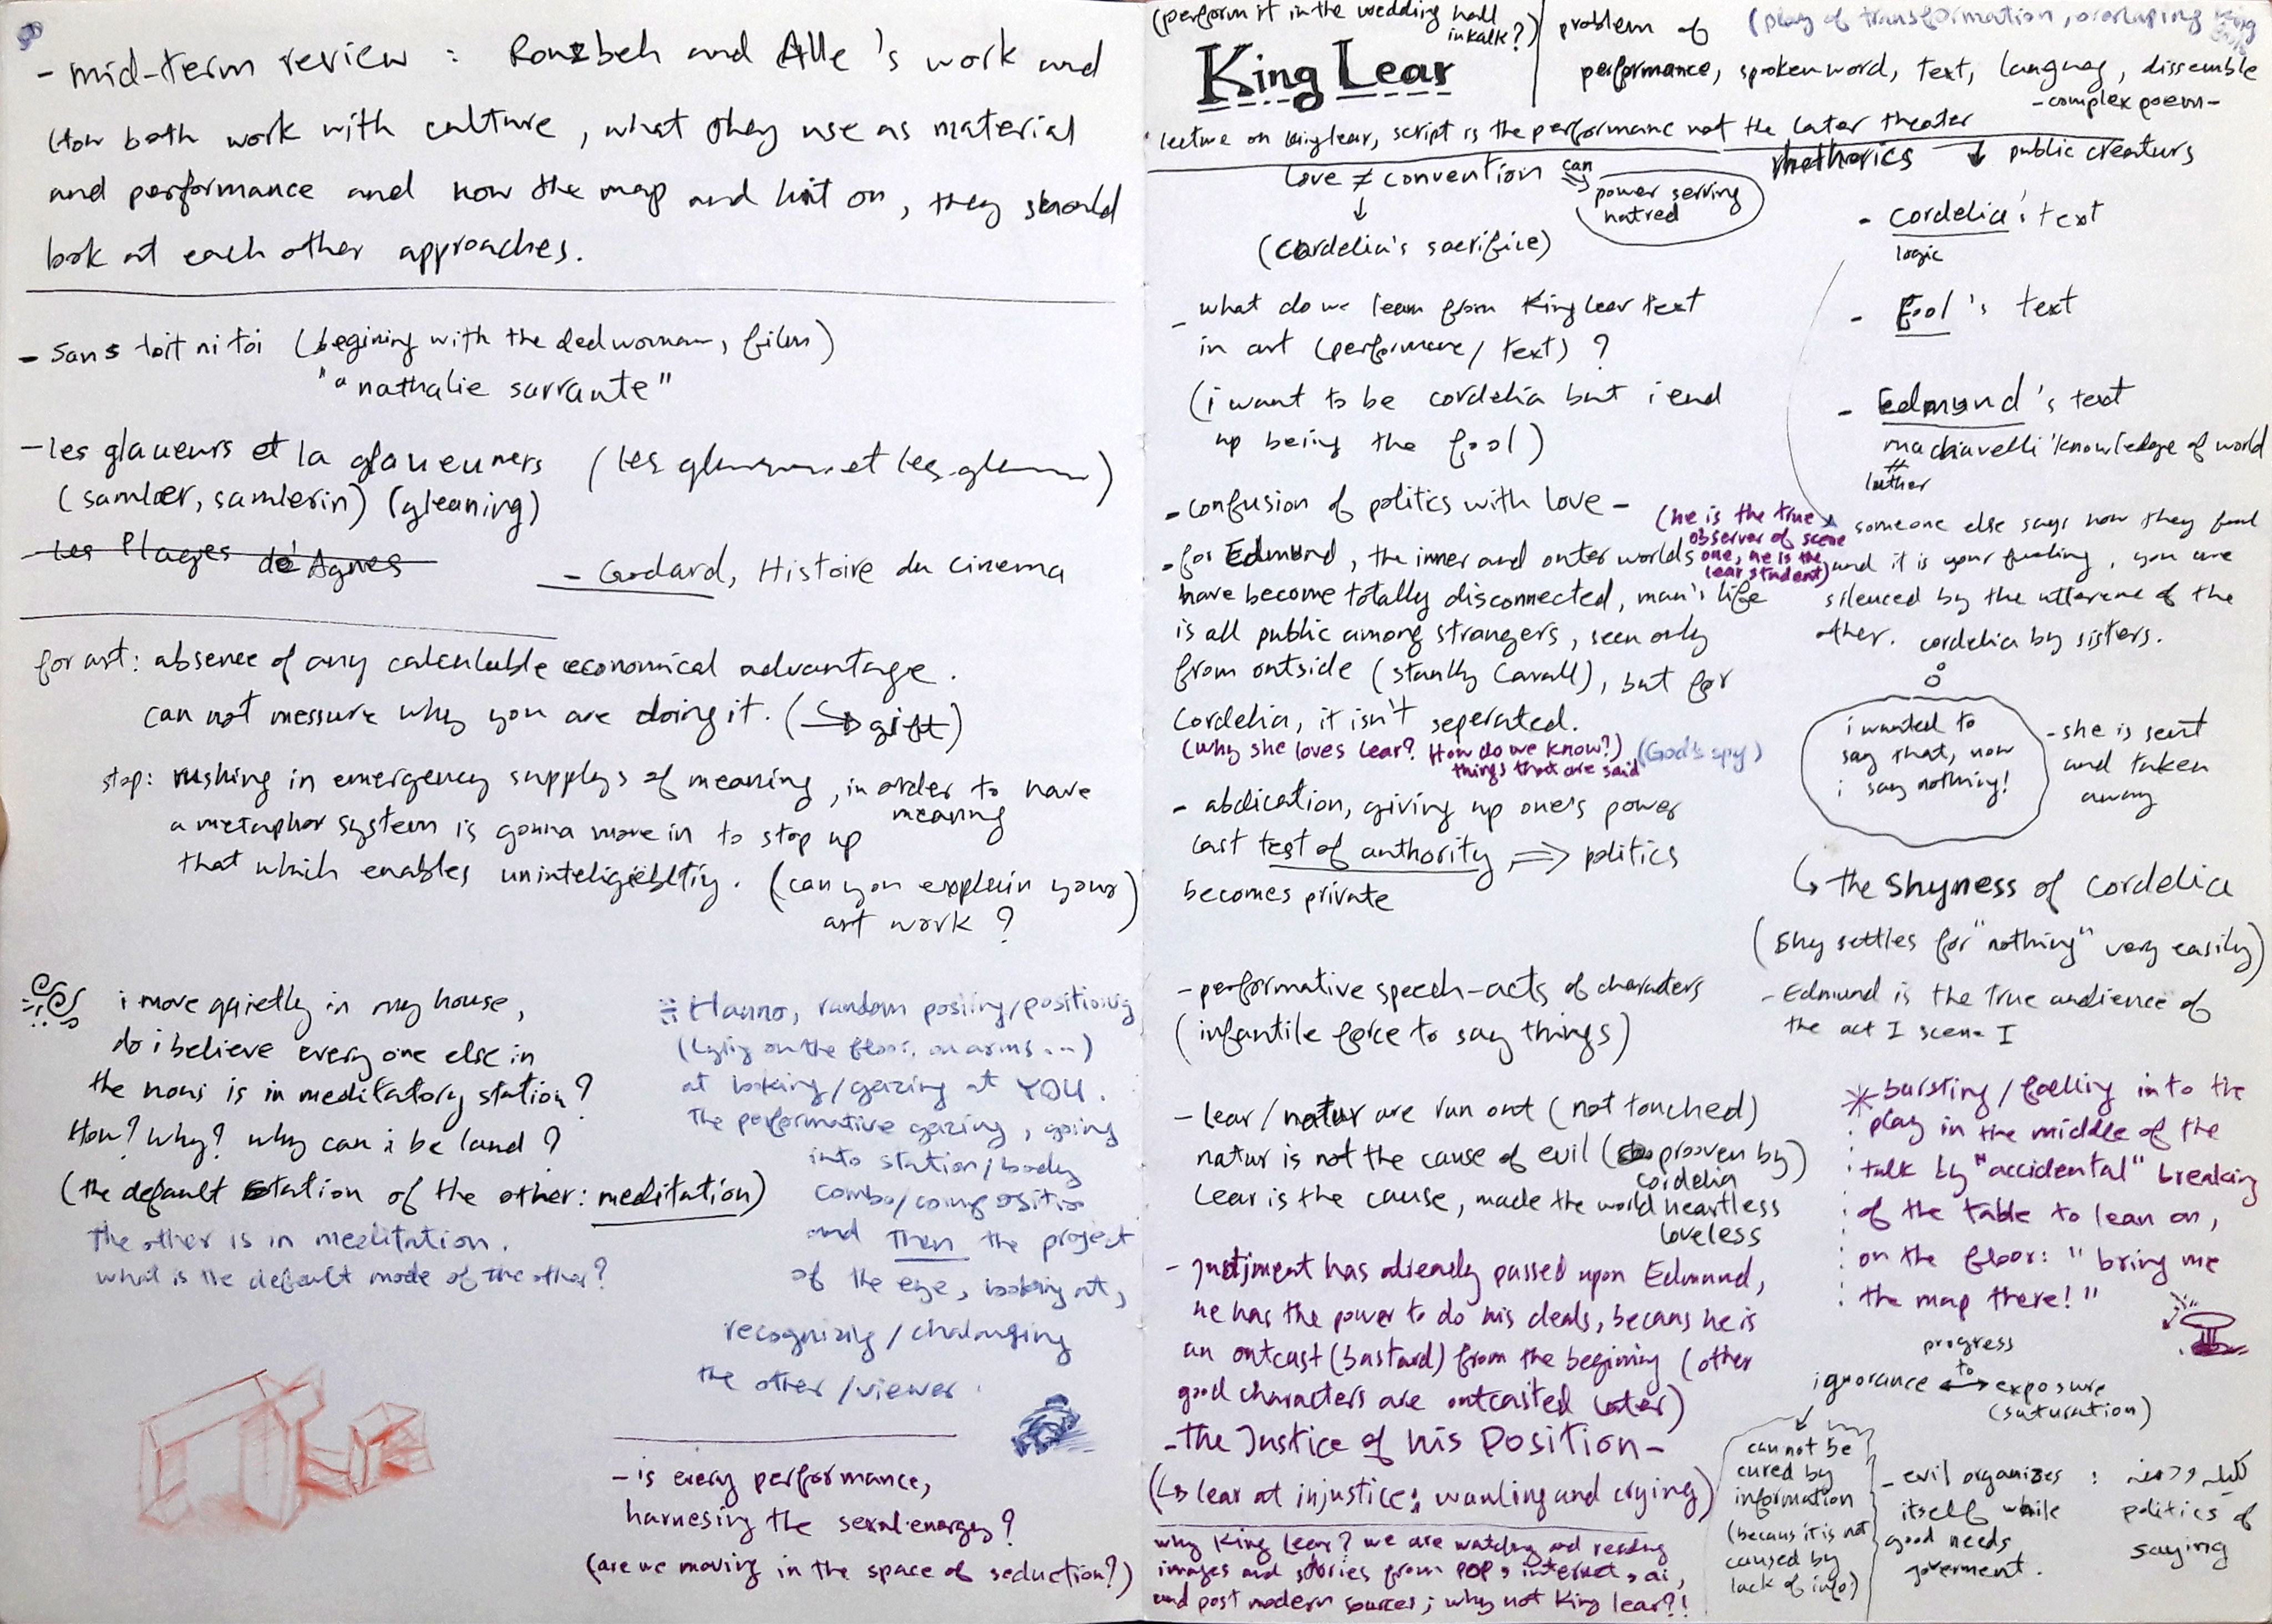 - mid-term review : Rouzbeh and Alle's work and
How both work with culture, what they use as material
and performance and how the map and hint on, they should
look at each other approaches.
- Sans toit ni toi (begining with the ded woman, film)
"a nathalie sarraute"
- les glaueurs et la glaueuners (les et les
(samler, samlerin) (gleaning)
les Plages de Agnes
- Godard, Histoire du cinema
for art: absence of any calculable economical advantage.
can not messure why you are doing it. (↪ gift)
stop: rushing in emergency supplys of meaning, in order to have
meaning
a metaphor system is gonna move in to stop up
that which enables uninteligiebltiy. (can you explain your
art work ?)
i move qietly in my house,
do i believe every one else in
the hous is in meditatory station?
How? Why? why can i be laud ?
(the default station of the other: meditation)
the other is in meditation.
what is the default mode of the other?
Hanno, random posiing/positionig
(lyig on the floor, on arms ...)
at looking/gazing at YOU.
the performative gazing, going
into station/body
combo/composition
and then the project
of the eye, looking at,
recognizig/chalanging
the other /viewer
- is every performance,
harnesing the sexual energy?
(are we moving in the space of seduction?)
(perform it in the wedding hall
in kalk?)
King Lear
problem of (play of transformation, overlaping
performance, spoken word, text, languag, dissemble
- complex poem -
lecture on king lear, script is the performanc not the later theater
love ≠ convention can ⇒ power serving
hatred
↓
(Cordelia's sacrifice)
rhethorics ↓ public creaturs
- cordelia's text
logic
- Fool's text
- Edmund's text
machiavelli 'knowledge of world
luther
- what do we learn from King Lear text
in art (performanc / text) ?
(i want to be cordelia but i end
up being the fool)
- confusion of politics with love -
- for Edmund, the inner and outer worlds
have become totally disconnected, man's life
is all public among strangers, seen only
from outside (Stanlly Cavall), but for
Cordelia, it isn't seperated.
(he is the true
observer of scene
one, he is the
lear student)
(why she loves Lear? How do we know?) (God's spy)
things that are said
someone else says how they feel
and it is your feeling, you are
silenced by the utterance of the
other. cordelia by sisters.
i wanted to
say that, now
i say nothing!
- she is sent
and taken
away
- abdication, giving up one's power
last test of authority ⇒ politics
becomes private
↳ the shyness of Cordelia
(shy settles for "nothing" very easily)
- Edmund is the true audience of
the act I scene I
- performative speech-acts of characters
(infantile force to say things)
- lear / natur are run out (not touched)
natur is not the cause of evil (prooven by)
cordelia
Lear is the cause, made the world heartless
loveless
- Justjment has already passed upon Edmund,
he has the power to do his deals, becaus he is
an outcast (bastard) from the begining (other
good characters are outcasted later)
- the Justice of his Position -
(↳ lear at injustice: wauling and crying)
why King Lear? we are watchig and reading
images and stories from POP, internet, ai,
and post modern sources; why not King Lear?!
* bursting/falling into the
play in the middle of the
talk by "accidental" breaking
of the table to lean on,
on the floor: "bring me
the map there!"
progress
to
ignorance ↔ exposure
(saturation)
cannot be
cured by
information
(becaus it is not
caused by
lack of info)
- evil organizes :
itself while
good needs
goverment.
politics of
saying